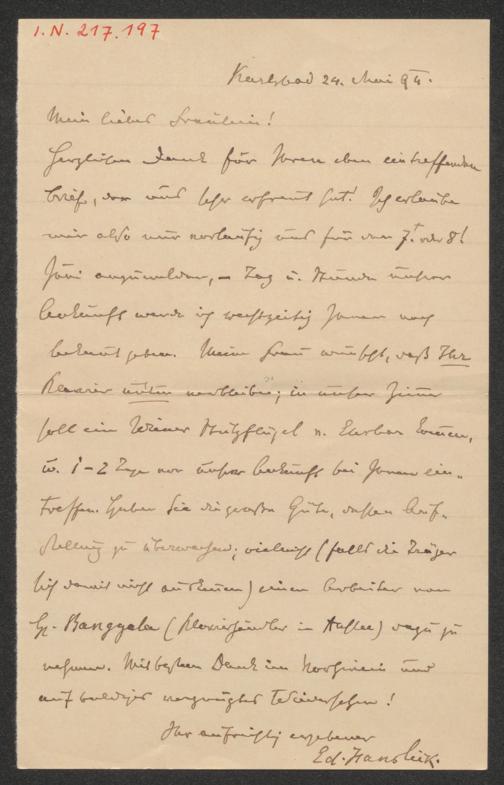 I. N. 217.197
Karlsbad 24. Mai 94.
Mein liebes Fräulein!
Herzlichen Dank für Ihren eben eintreffenden
Brief, der uns sehr erfreut hat! Ich erlaube
mir also nur vorläufig uns für den 7. oder 8!
Juni anzumelden, – Tag u. Stunde unserer
Ankunft werde ich rechtzeitig Ihnen noch
bekannt geben. Meine Frau wünscht, daß Ihr
Klavier unten verbleibe; in unser Zimmer
soll ein Wiener Stutzflügel v. Ehrbar kommen,
u. 1–2 Tage vor unserer Ankunft bei Ihnen ein-
treffen. Haben Sie die große Güte, dessen Auf-
stellung zu überwachen; vielleicht (falls die Träger
sich damit nicht auskennen) einen Arbeiter von
H. (Klavierhändler in Aussee) dazu zu
nehmen. Mit bestem Dank im Vorhinein und
auf baldiges vergnügtes Wiedersehen!
Ihr aufrichtig ergebener
Ed. Hanslick.